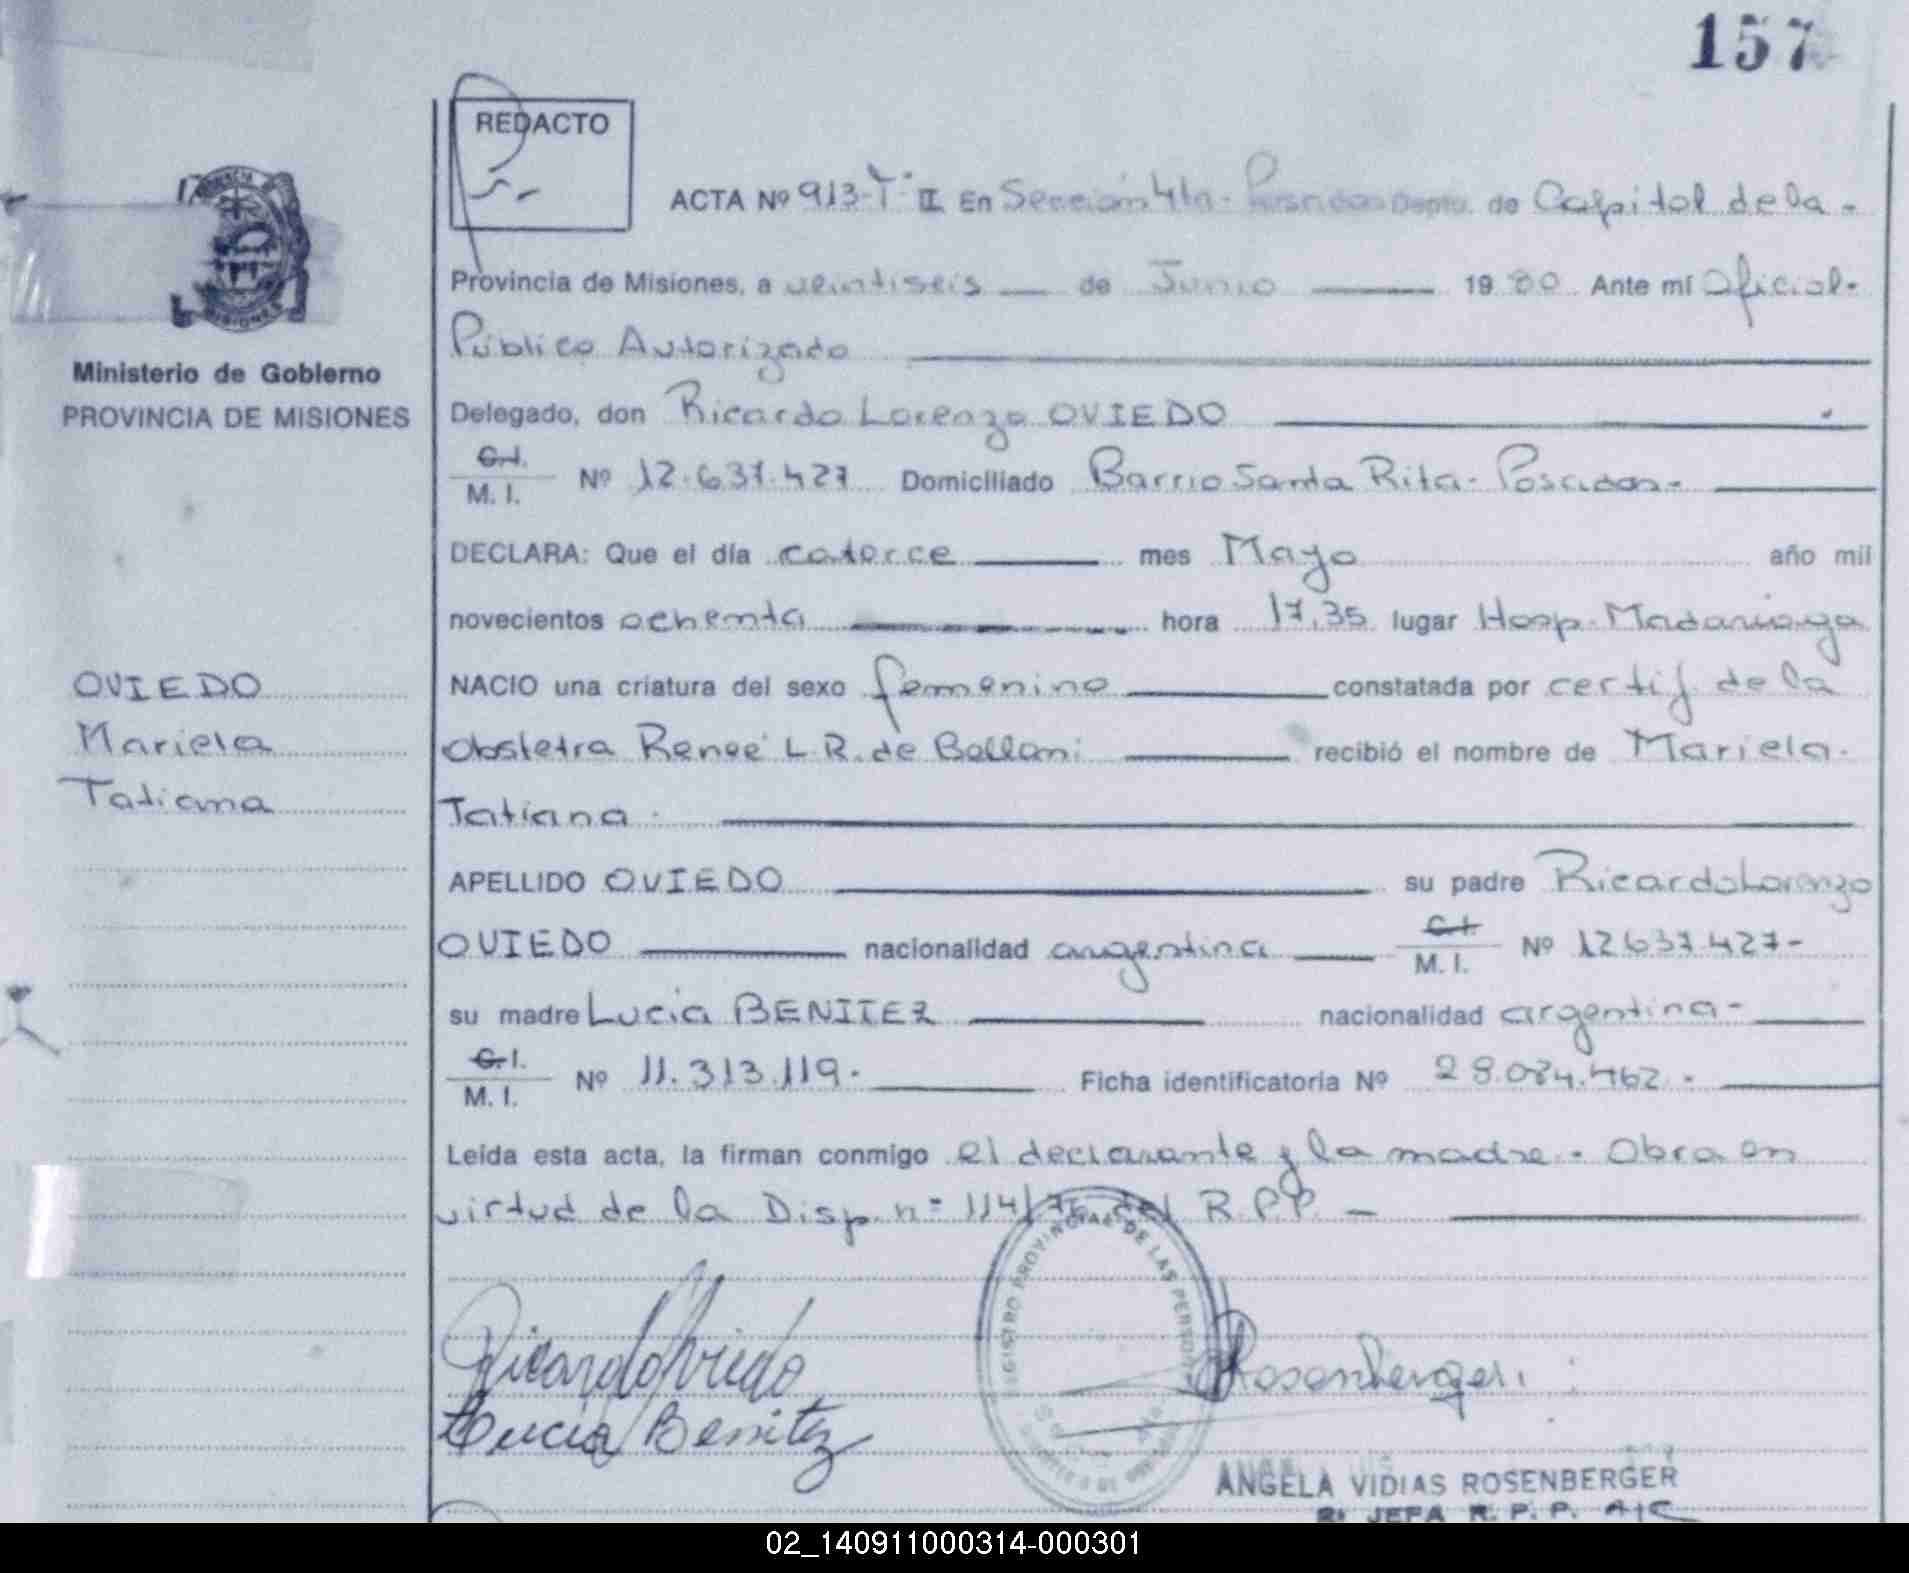 157
REDACTO
ACTA Nº 913-Tº II En Sección 4ta- Posadas Depto. de Capital de la-
Provincia de Misiones, a veintiseis de Junio 1980 Ante mí Oficial-
Público Autorizado
Ministerio de Gobierno
PROVINCIA DE MISIONES
Delegado, don Ricardo Lorenzo OVIEDO
C.I. M. I. Nº 12.637.427 Domiciliado Barrio Santa Rita- Posadas-
DECLARA: Que el día catorce mes Mayo año mil
novecientos ochenta hora 17,35 lugar Hosp. Madariaga
OVIEDO
Mariela
Tatiana
NACIO una criatura del sexo femenino constatada por certif. de la
Obstetra Reneé L.R. de Bellani recibió el nombre de Mariela-
Tatiana-
APELLIDO OVIEDO su padre Ricardo Lorenzo
OVIEDO nacionalidad argentina C.I. M. I. Nº 12.637.427-
su madre Lucia BENITEZ nacionalidad argentina-
C.I. M. I. Nº 11.313.119- Ficha identificatoria Nº 28.084.462-
Leída esta acta, la firman conmigo el declarante y la madre- Obra en
virtud de la Disp. nº 114/76 del R.P.P. -
REGISTRO PROVINCIAL DE LAS PERSONAS
Ricardo Oviedo
Rosenberger
Lucia Benitez
ANGELA VIDIAS ROSENBERGER
2ª JEFA R. P. P. A/C
02_140911000314-000301